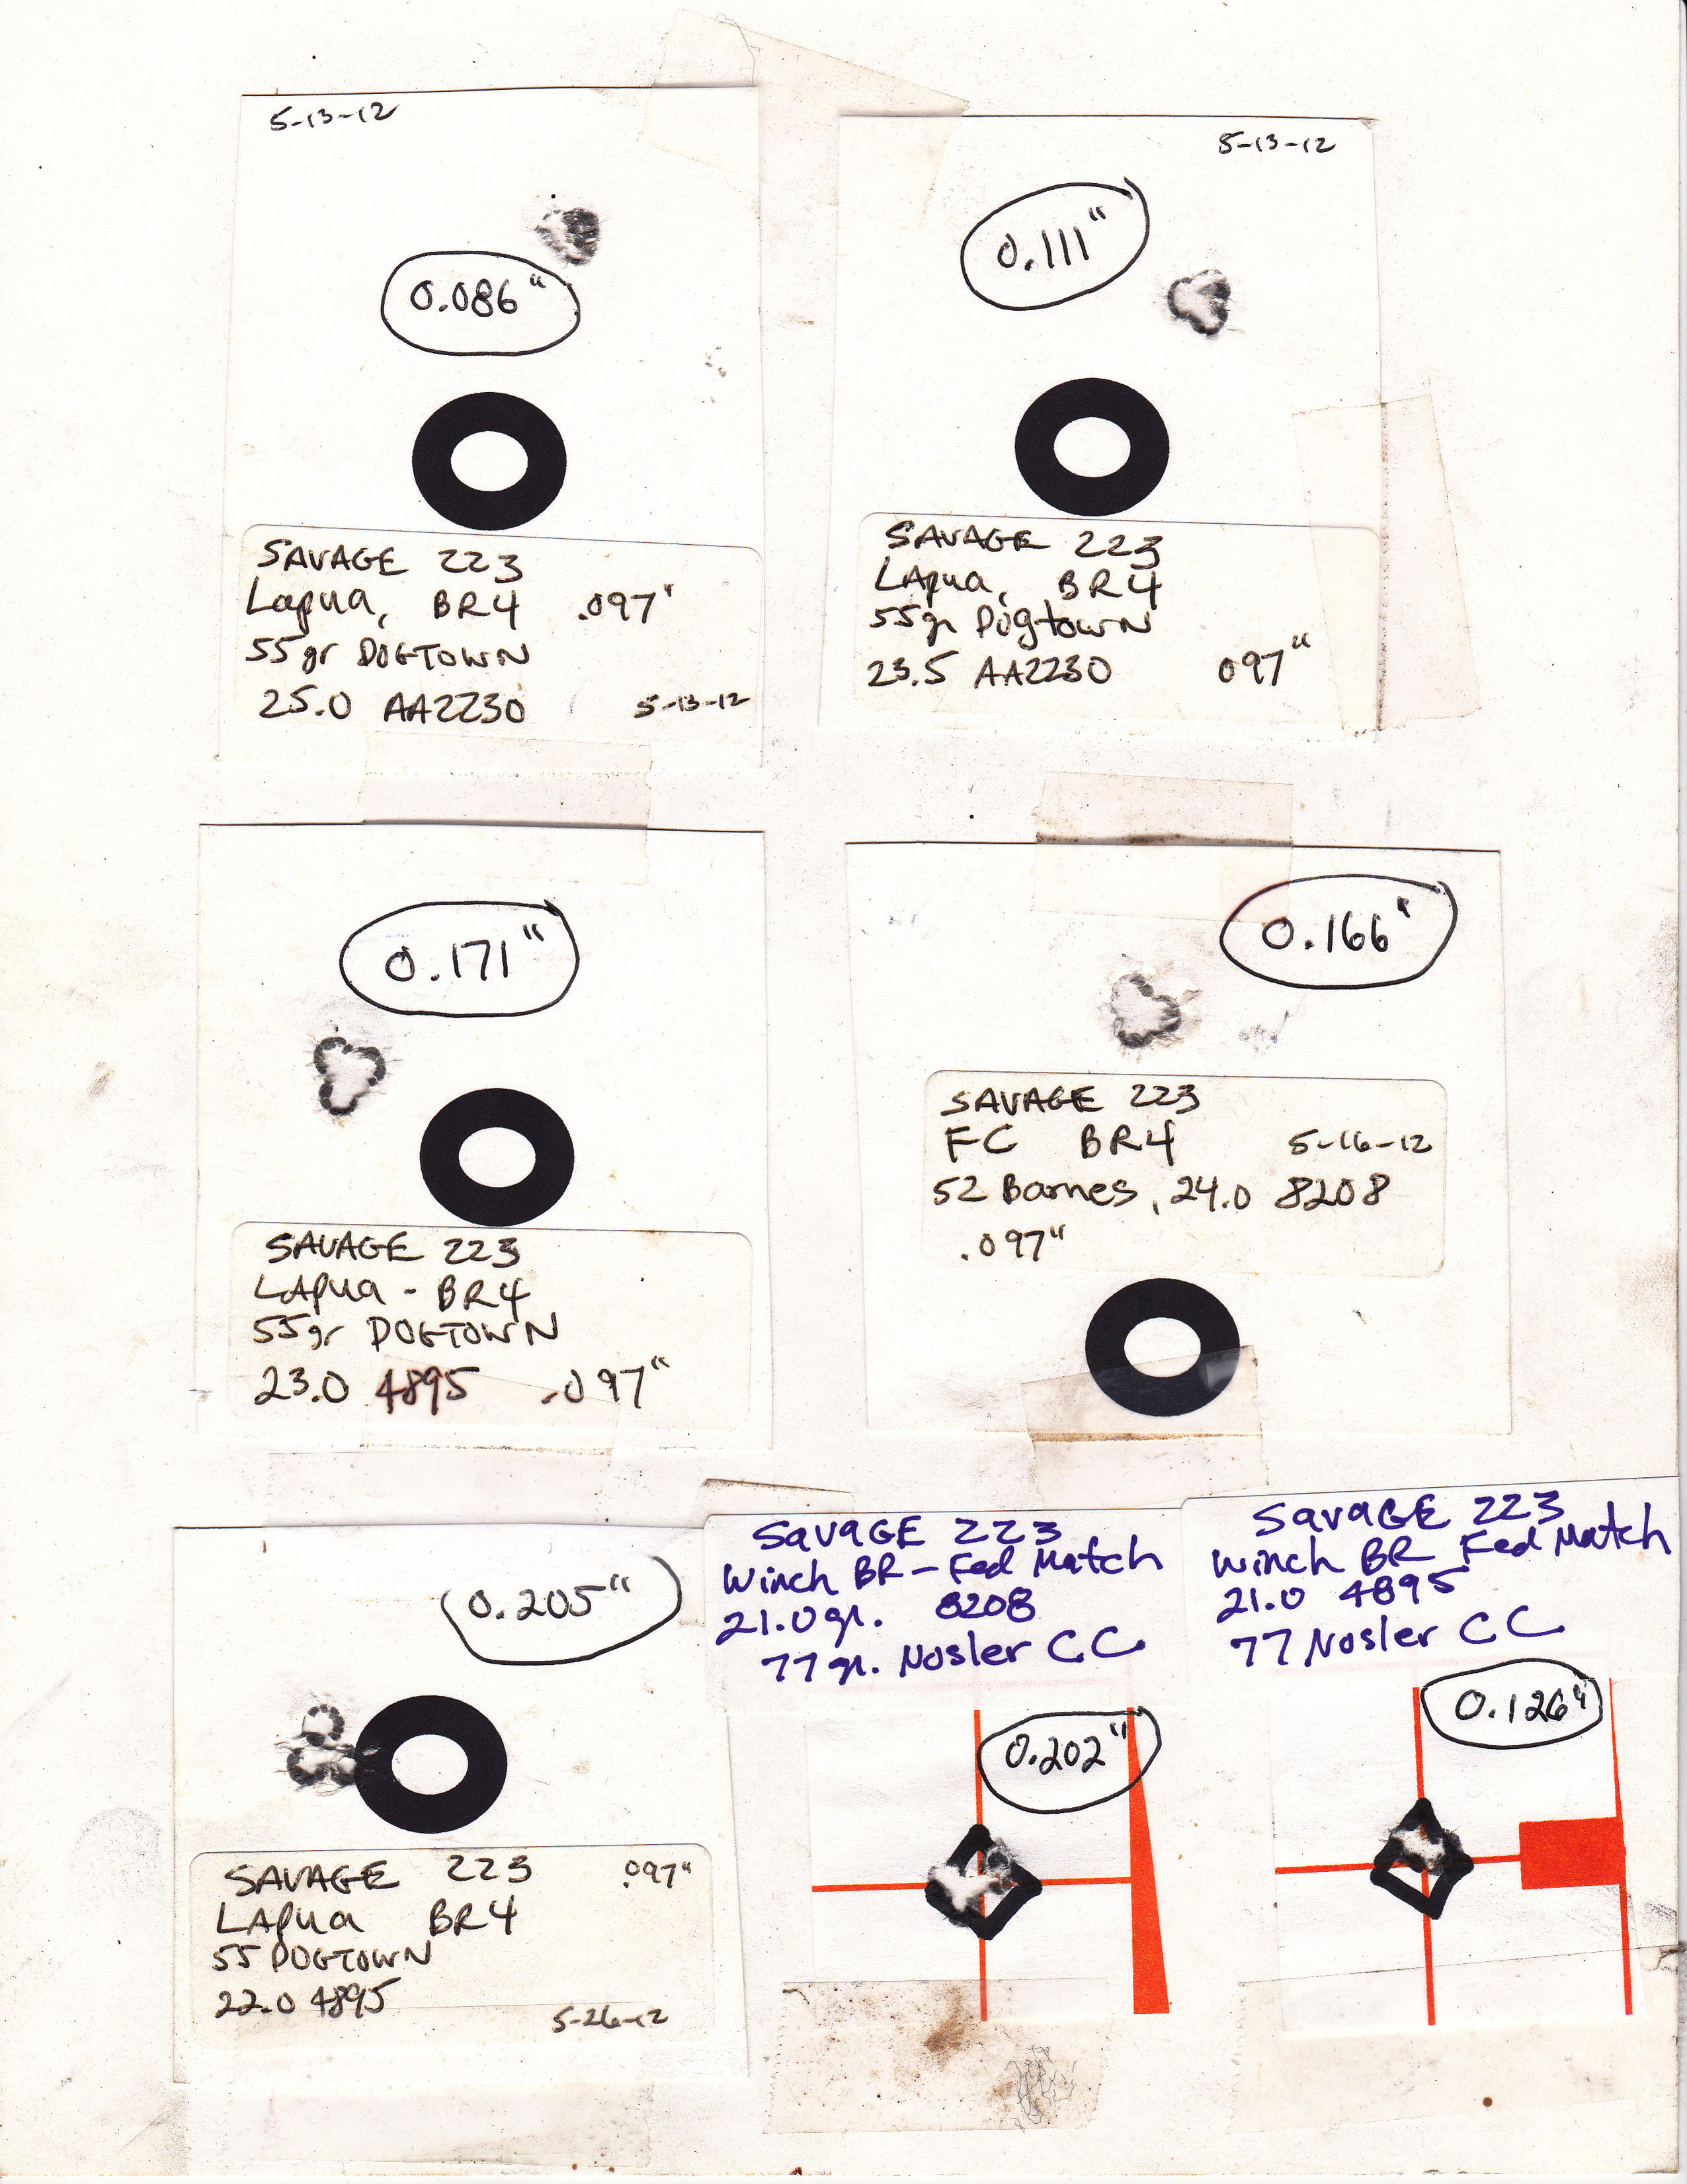 5-13-12
0.086"
SAVAGE 223
Lapua, BR4 .097"
55gr DOGTOWN
25.0 AA2230 5-13-12
5-13-12
0.111"
SAVAGE 223
LApua, BR4
55gr Dogtown
23.5 AA2230 097"
0.171"
SAVAGE 223
LApua - BR4
55gr DOGTOWN
23.0 4895 .097"
0.166"
SAVAGE 223
FC BR4 5-16-12
52 Barnes, 24.0 8208
.097"
0.205"
SAVAGE 223 .097"
LApua BR4
55 DOGTOWN
22.0 4895
5-26-12
SavaGE 223
Winch BR - Fed Match
21.0 gr. 8208
77 gr. Nosler CC
0.202"
SavaGE 223
Winch BR Fed Match
21.0 4895
77 Nosler CC
0.126"